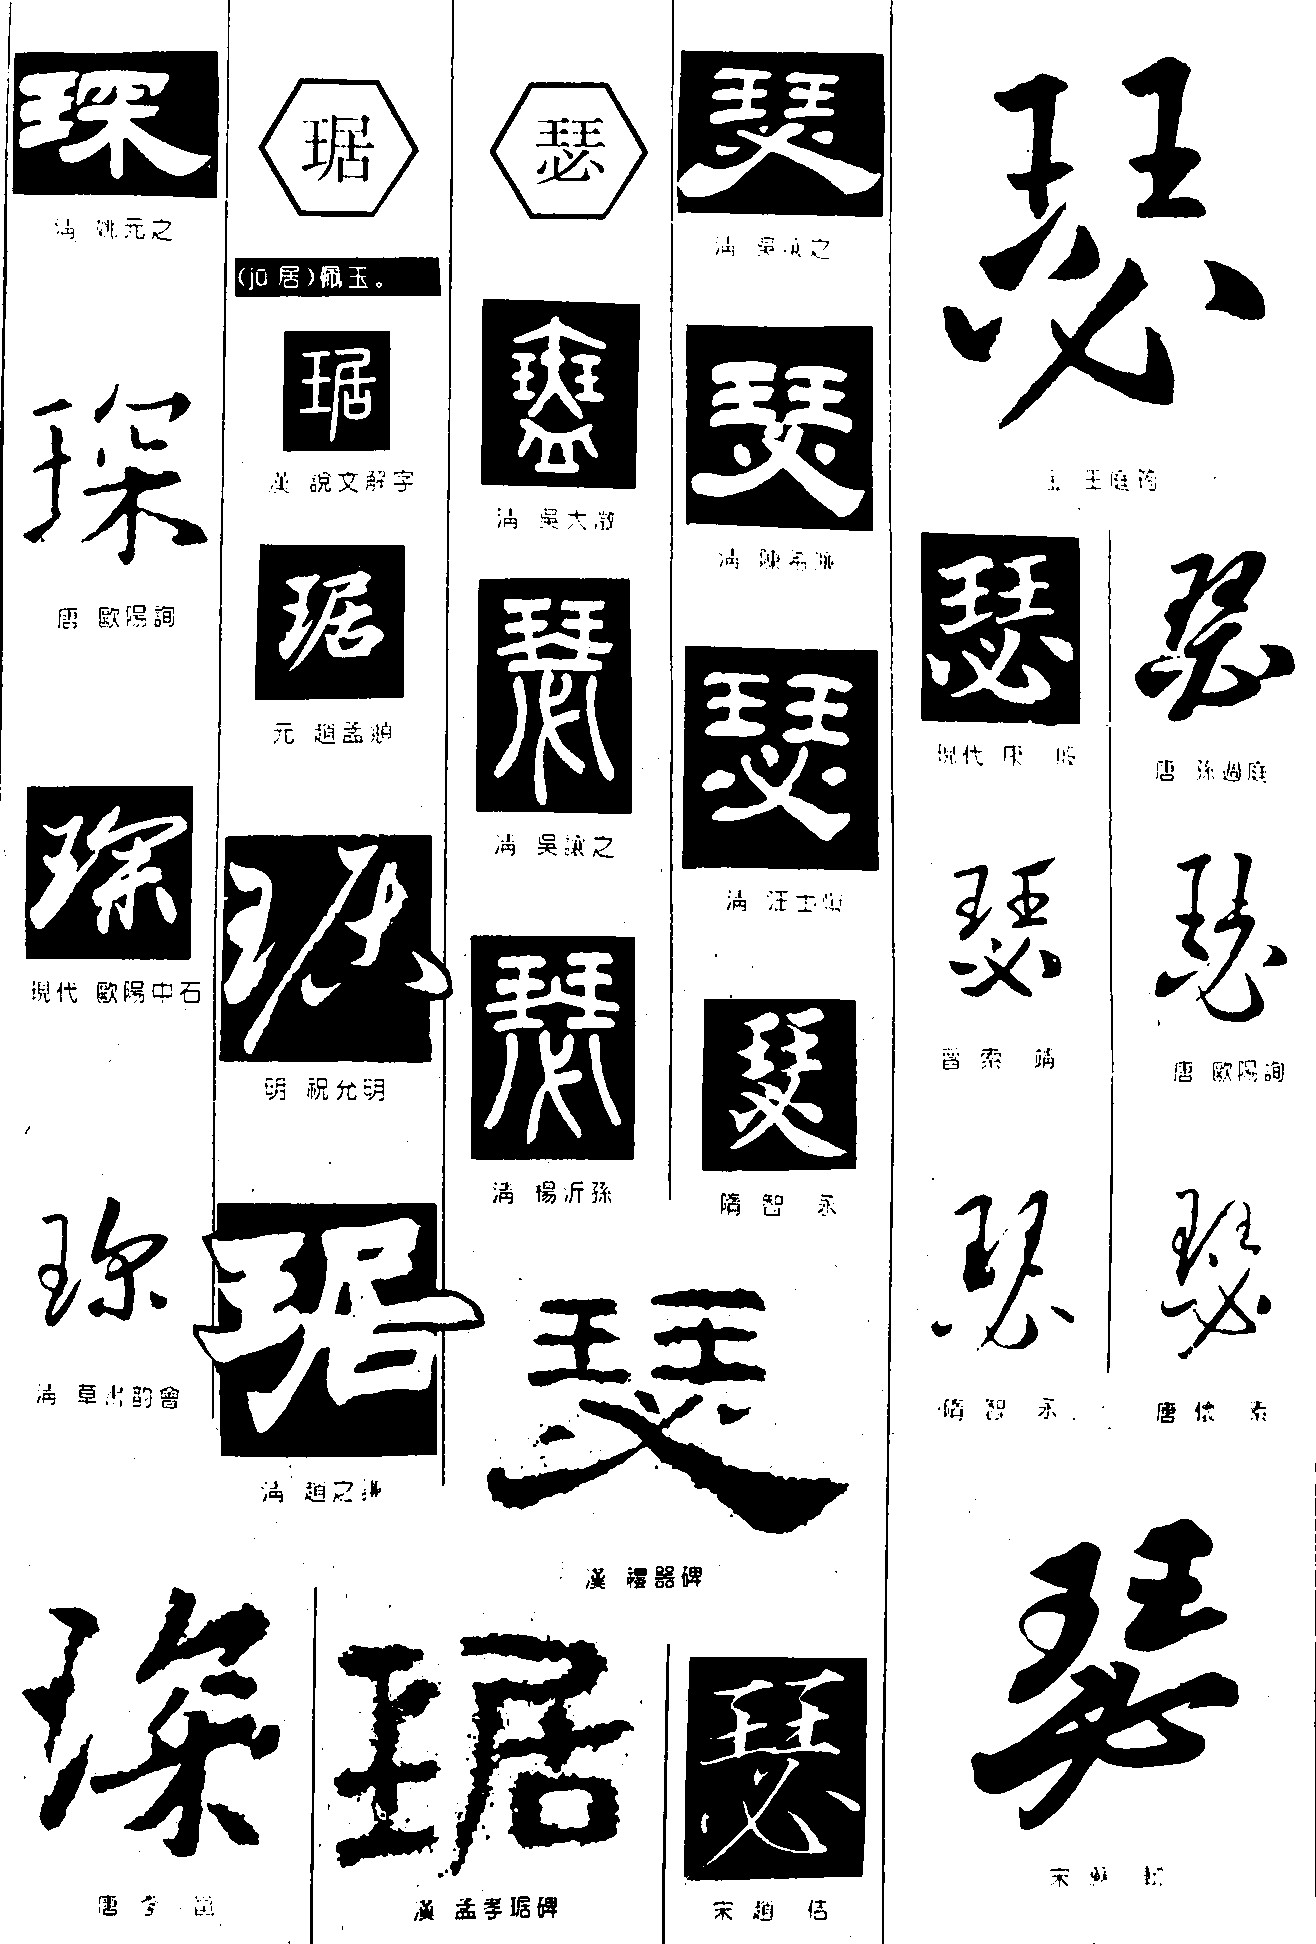 琛
清 姚元之
琛
唐 歐陽詢
琛
現代 歐陽中石
琛
清 草書韵會
琛
唐 李邕
琚
(jū 居)佩玉。
琚
漢 說文解字
琚
元 趙孟頫
琚
明 祝允明
琚
清 趙之謙
琚
漢 孟孝琚碑
瑟
瑟
清 吳大澂
瑟
清 吳讓之
瑟
清 楊沂孫
瑟
漢 禮器碑
瑟
清 吳讓之
瑟
清 陳希祖
瑟
清 汪士慎
瑟
隋 智 永
瑟
宋 趙 佶
瑟
王庭筠
瑟
現代 康
瑟
晉 索 靖
瑟
隋 智 永
瑟
唐 孫過庭
瑟
唐 歐陽詢
瑟
唐 懷 素
瑟
宋 蘇 軾